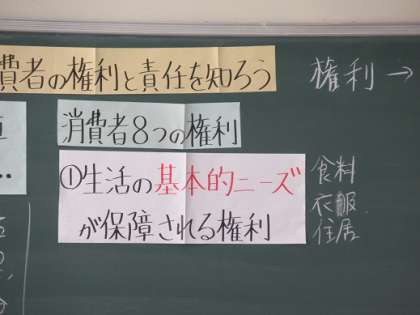 費者の権利と責任を知ろう
権利→
消費者8つの権利
①生活の基本的ニーズ
が保障される権利
食料
衣服
住居